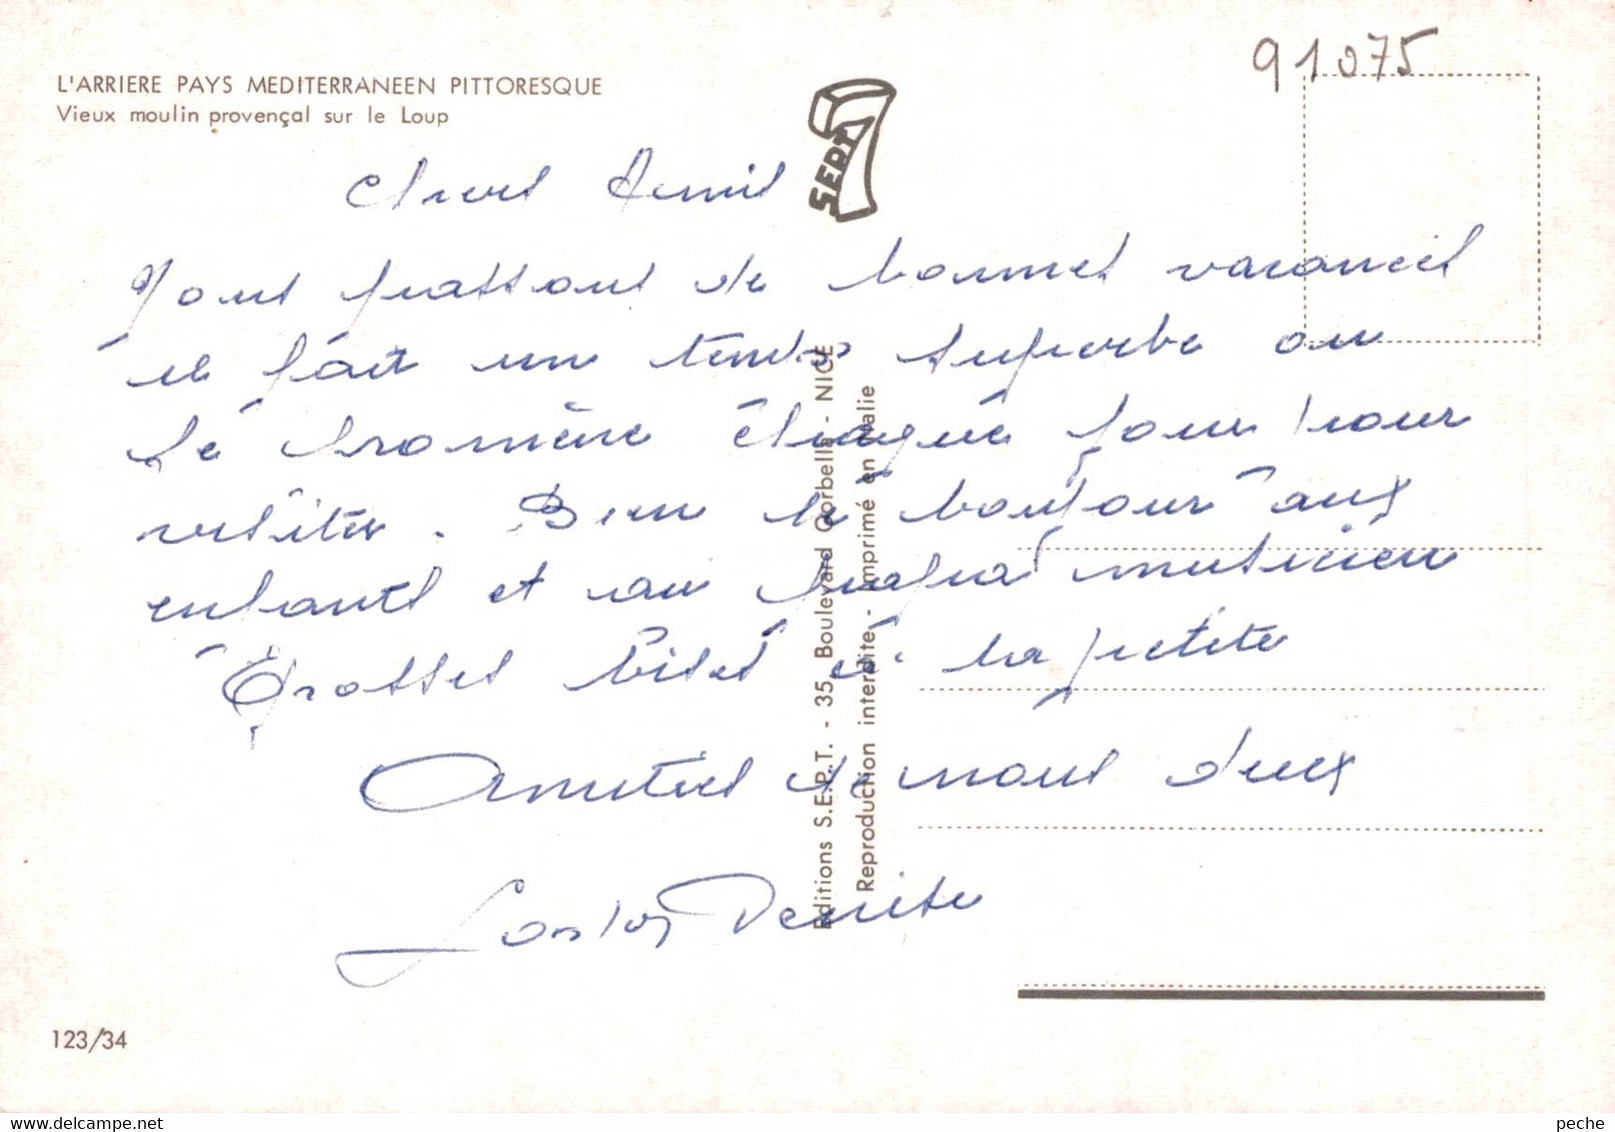 91075
L'ARRIERE PAYS MEDITERRANEEN PITTORESQUE
Vieux moulin provençal sur le Loup
SEPT
Chers Amis
Nous passons de bonnes vacances
il fait un temps superbe on
se promène chaque jour pour
visiter. Bien le bonjour aux
enfants et au papa musicien
Grosses bises à la petite
Amitiés de nous deux
Denise
Editions S.E.P.T. - 35, Boulevard Gorbella - NICE
Reproduction interdite - Imprimé en Italie
123/34
delcampe.net
peche